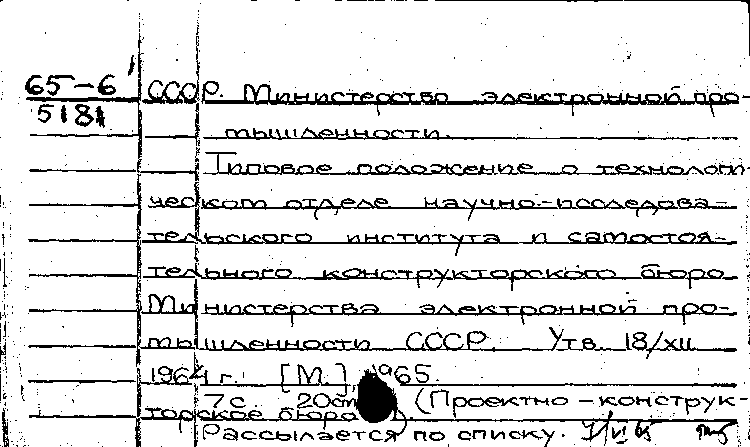 65-6
5181
СССР. Министерство электронной про-
мышленности.
Типовое положение о технологи-
ческом отделе научно-исследова-
тельского института и самостоя-
тельного конструкторского бюро
Министерства электронной про-
мышленности СССР. Утв. 18/XII
1964 г. [М.], 1965.
7 с. 20см (Проектно-конструк-
торское бюро)
Рассылается по списку.